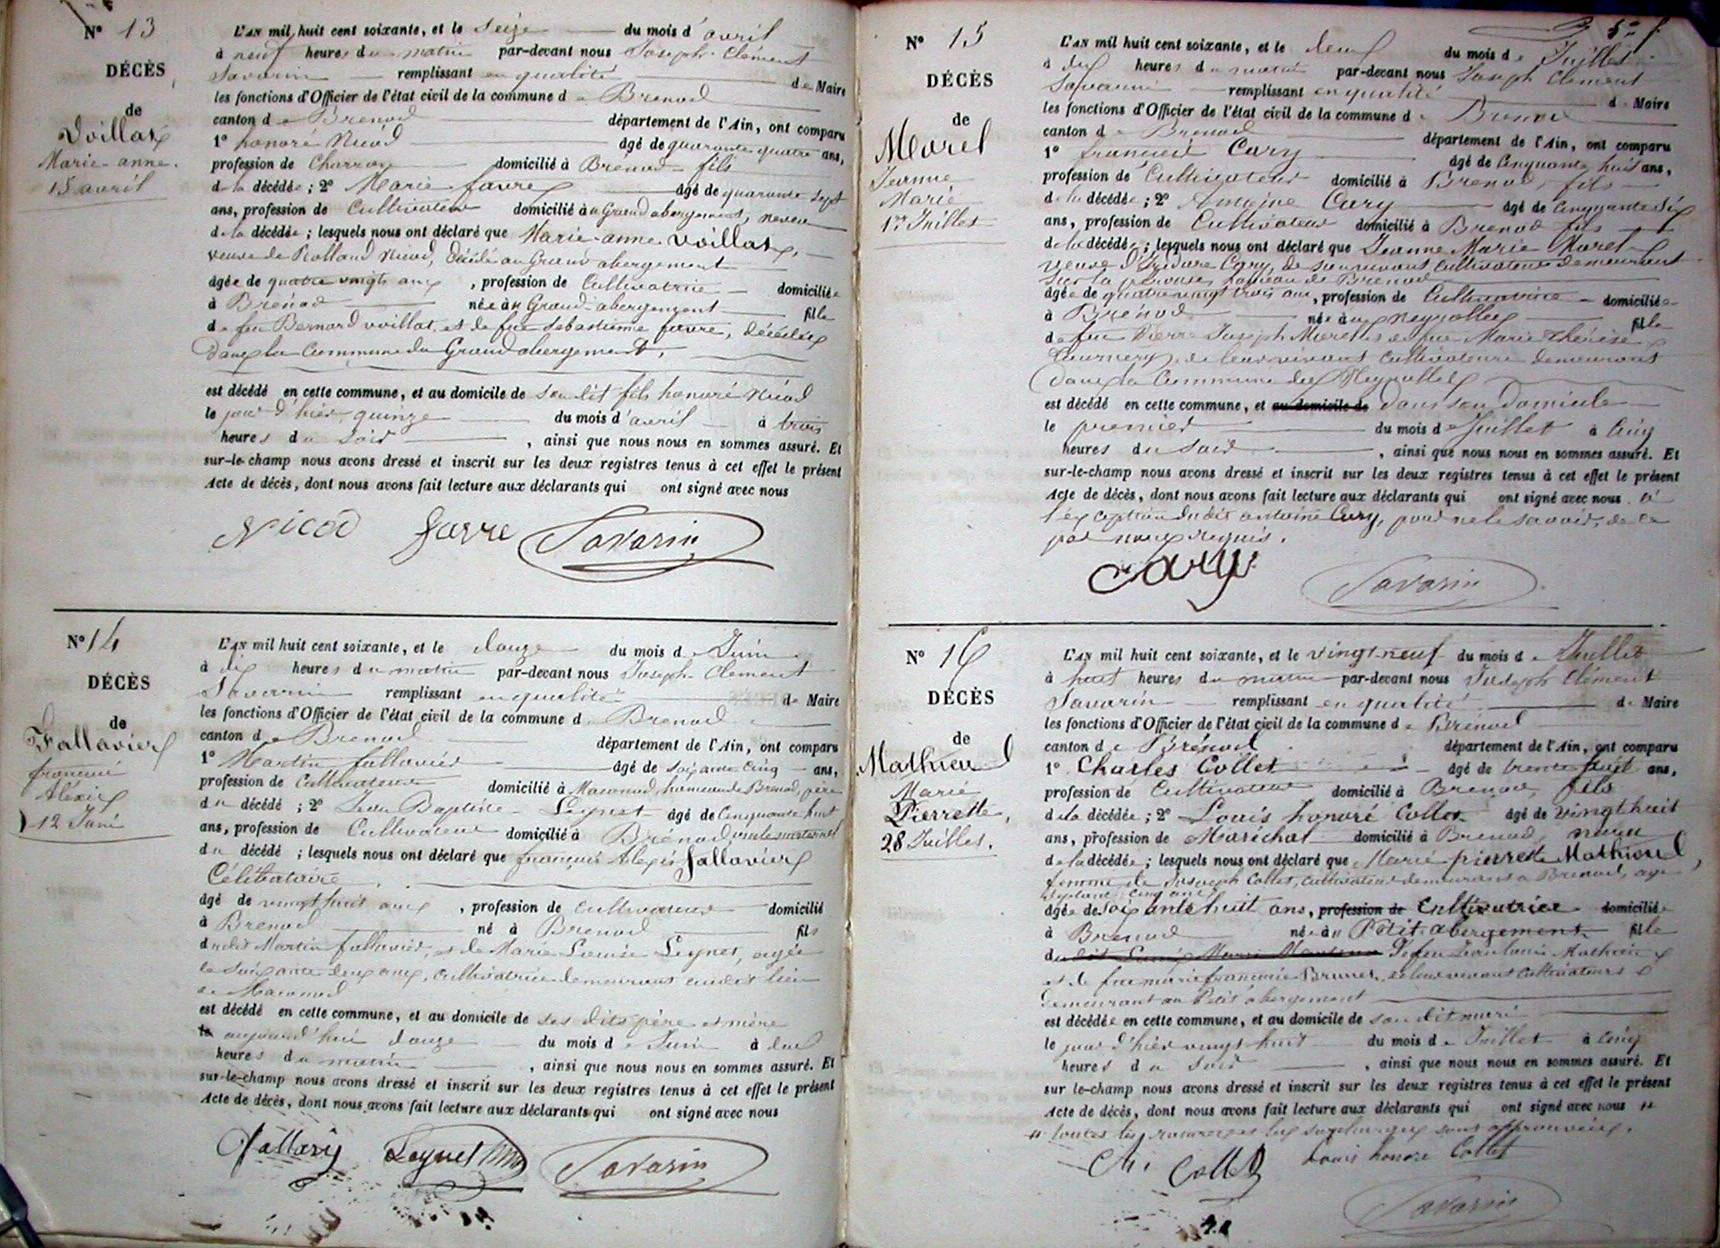 N° 13
DÉCÈS
de
Voillat
Marie-anne.
15 avril
L'AN mil huit cent soixante, et le seize du mois d'avril
à neuf heures du matin par-devant nous Joseph Clément
Savarin remplissant en qualité de Maire
les fonctions d'Officier de l'état civil de la commune de Brenod
canton de Brenod département de l'Ain, ont comparu
1° honoré Nicod âgé de quarante quatre ans,
profession de Charron domicilié à Brénod fils
de la décédée ; 2° Marie favre âgé de quarante sept
ans, profession de Cultivateur domicilié au Grand abergement, neveu
de la décédée ; lesquels nous ont déclaré que Marie-anne Voillat,
veuve de Rolland Nicod, décédé au Grand abergement
âgée de quatre vingts ans, profession de Cultivatrice domiciliée
à Brénod née au Grand-abergement fille
de feu Bernard voillat, et de fue Sebastienne favre, décédés
dans la Commune du Grand abergement,
est décédé en cette commune, et au domicile de son dit fils honoré Nicod
le jour d'hier quinze du mois d'avril à trois
heures du soir, ainsi que nous nous en sommes assuré. Et
sur-le-champ nous avons dressé et inscrit sur les deux registres tenus à cet effet le présent
Acte de décès, dont nous avons fait lecture aux déclarants qui ont signé avec nous
Nicod favre Savarin
N° 14
DÉCÈS
de
Fallavier
françois
Aléxis
12 Juin
L'AN mil huit cent soixante, et le douze du mois de Juin
à dix heures du matin par-devant nous Joseph Clément
Savarin remplissant en qualité de Maire
les fonctions d'Officier de l'état civil de la commune de Brenod
canton de Brenod département de l'Ain, ont comparu
1° Martin fallavier âgé de soixante cinq ans,
profession de Cultivateur domicilié à Maconod, hameau de Brenod, père
du décédé ; 2° Jean Baptiste Leynet âgé de Cinquante huit
ans, profession de Cultivateur domicilié à Brénod, oncle maternel
du décédé ; lesquels nous ont déclaré que françois Alexis fallavier
Célibataire
âgé de vingt huit ans, profession de Cultivateur domicilié
à Brenod né à Brenod fils
du dit Martin fallavier, et de Marie Louise Leynet, agée
de soixante deux ans, cultivatrice demeurant audit lieu
de Maconod
est décédé en cette commune, et au domicile de ses dits père et mère
le aujourd'hui douze du mois de Juin à deux
heures du matin, ainsi que nous nous en sommes assuré. Et
sur-le-champ nous avons dressé et inscrit sur les deux registres tenus à cet effet le présent
Acte de décès, dont nous avons fait lecture aux déclarants qui ont signé avec nous
Leynet Savarin
N° 15
DÉCÈS
de
Morel
Jeanne
Marie
1er Juillet
L'AN mil huit cent soixante, et le deux du mois de Juillet
à dix heures du matin par-devant nous Joseph Clément
Savarin remplissant en qualité de Maire
les fonctions d'Officier de l'état civil de la commune de Brenod
canton de Brenod département de l'Ain, ont comparu
1° françois Cary âgé de Cinquante huit ans,
profession de Cultivateur domicilié à Brenod, fils
de la décédée ; 2° Antoine Cary âgé de Cinquante six
ans, profession de Cultivateur domicilié à Brenod fils
de la décédée ; lesquels nous ont déclaré que Jeanne Marie Morel
veuve d'Isidore Cary, de son vivant cultivateur demeurant
sur la hameau de Brenod
âgée de quatre vingt trois ans, profession de Cultivatrice domiciliée
à Brénod née aux Neyrolles fille
de feu Pierre Joseph Morel et de fue Marie Thérèse
de leur vivant cultivateurs demeurant
dans la Commune des Neyrolles
est décédé en cette commune, et au domicile de dans son domicile
le premier du mois de Juillet à Cinq
heures du soir, ainsi que nous nous en sommes assuré. Et
sur-le-champ nous avons dressé et inscrit sur les deux registres tenus à cet effet le présent
Acte de décès, dont nous avons fait lecture aux déclarants qui ont signé avec nous à
l'exception du dit antoine Cary, pour ne le savoir, de ce
par nous requis.
Cary Savarin
N° 16
DÉCÈS
de
Mathieu
Marie
Pierrette,
28 Juillet.
L'AN mil huit cent soixante, et le vingt neuf du mois de Juillet
à huit heures du matin par-devant nous Joseph Clément
Savarin remplissant en qualité de Maire
les fonctions d'Officier de l'état civil de la commune de Brénod
canton de Brénod département de l'Ain, ont comparu
1° Charles Collet âgé de trente huit ans,
profession de Cultivateur domicilié à Brenod, fils
de la décédée ; 2° Louis honoré Collet âgé de vingt huit
ans, profession de Maréchal domicilié à Brenod, neveu
de la décédée ; lesquels nous ont déclaré que Marie pierrette Mathieu,
femme de Joseph Collet, cultivateur demeurant à Brenod, agé
cinq ans
âgée de soixante huit ans, profession de Cultivatrice domiciliée
à Brenod née au Petit abergement fille
de feu Jean Louis Mathieu
et de fue marie françoise Brunet, de leur vivant cultivateurs
demeurant au Petit abergement
est décédée en cette commune, et au domicile de son dit mari
le jour d'hier vingt huit du mois de Juillet à Cinq
heures du soir, ainsi que nous nous en sommes assuré. Et
sur le-champ nous avons dressé et inscrit sur les deux registres tenus à cet effet le présent
Acte de décès, dont nous avons fait lecture aux déclarants qui ont signé avec nous #
# toutes les ratures et les surcharges sont approuvées.
Ch. Collet Louis honoré Collet
Savarin